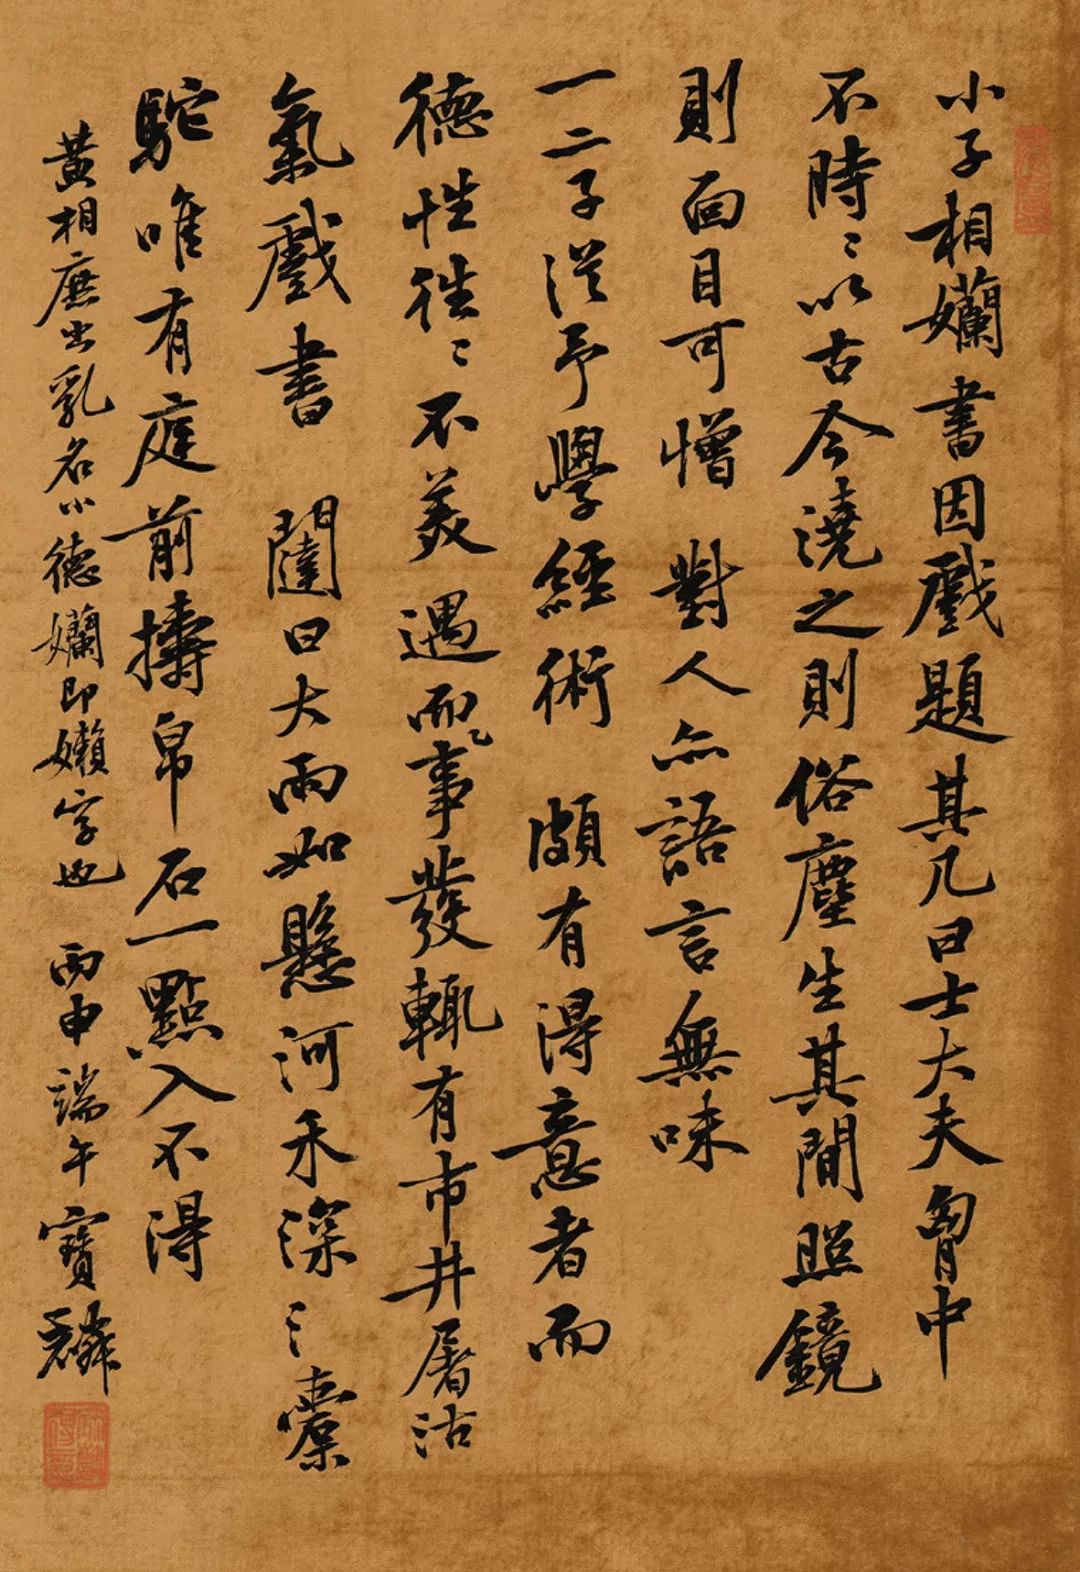 小子相孄書因戲題其几曰士大夫胷中
不時〻以古今澆之則俗塵生其間照鏡
則面目可憎對人亦語言無味
一二子從予學經術頗有得意者而
德性往〻不美遇而事發輒有市井屠沽
氣戲書 闥曰大雨如懸河禾深〻橐
駝唯有庭前擣帛石一點入不得
黃相庶出乳名小德孄即嬾字也 丙申端午寶麟